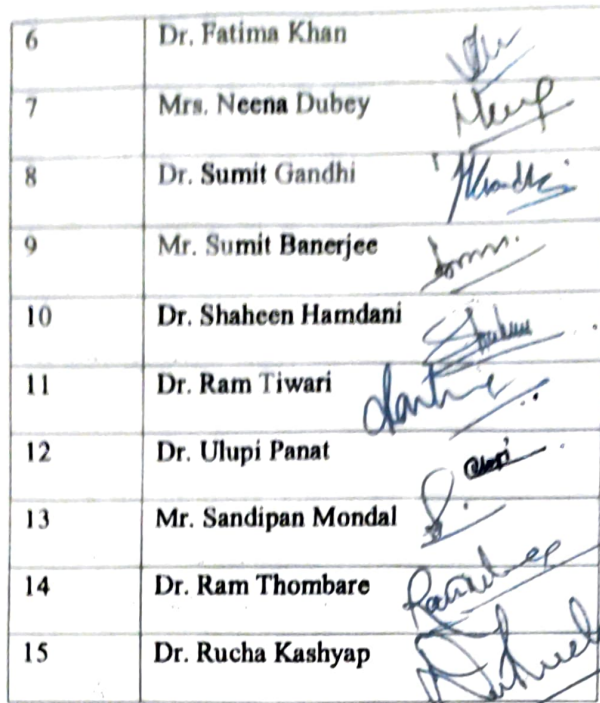 6 Dr. Fatima Khan
7 Mrs. Neena Dubey
8 Dr. Sumit Gandhi
9 Mr. Sumit Banerjee
10 Dr. Shaheen Hamdani
11 Dr. Ram Tiwari
12 Dr. Ulupi Panat
13 Mr. Sandipan Mondal
14 Dr. Ram Thombare
15 Dr. Rucha Kashyap